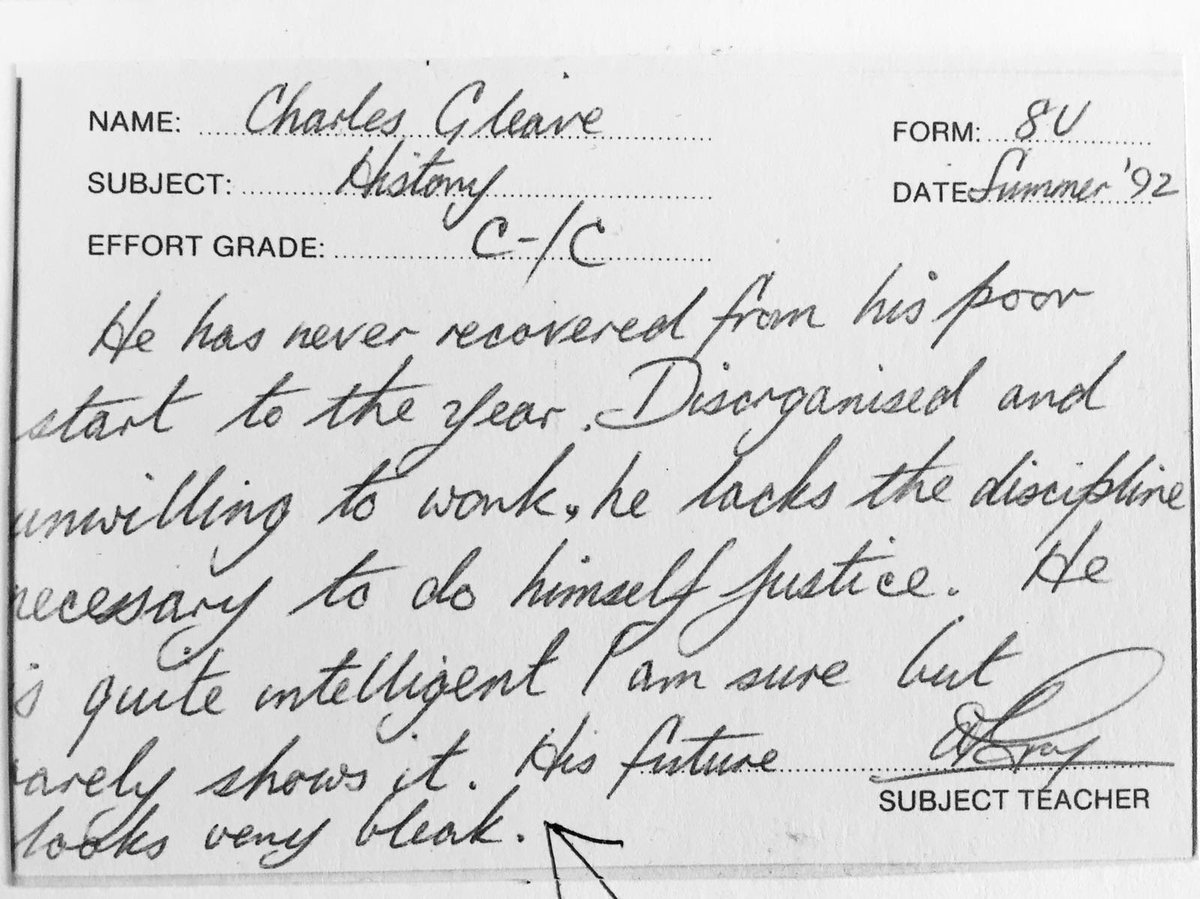 NAME: Charles Gleave
FORM: 8U
SUBJECT: History
DATE Summer '92
EFFORT GRADE: C-/C
He has never recovered from his poor
start to the year. Disorganised and
unwilling to work, he lacks the discipline
necessary to do himself justice. He
is quite intelligent I am sure but
rarely shows it. His future
looks very bleak.
SUBJECT TEACHER